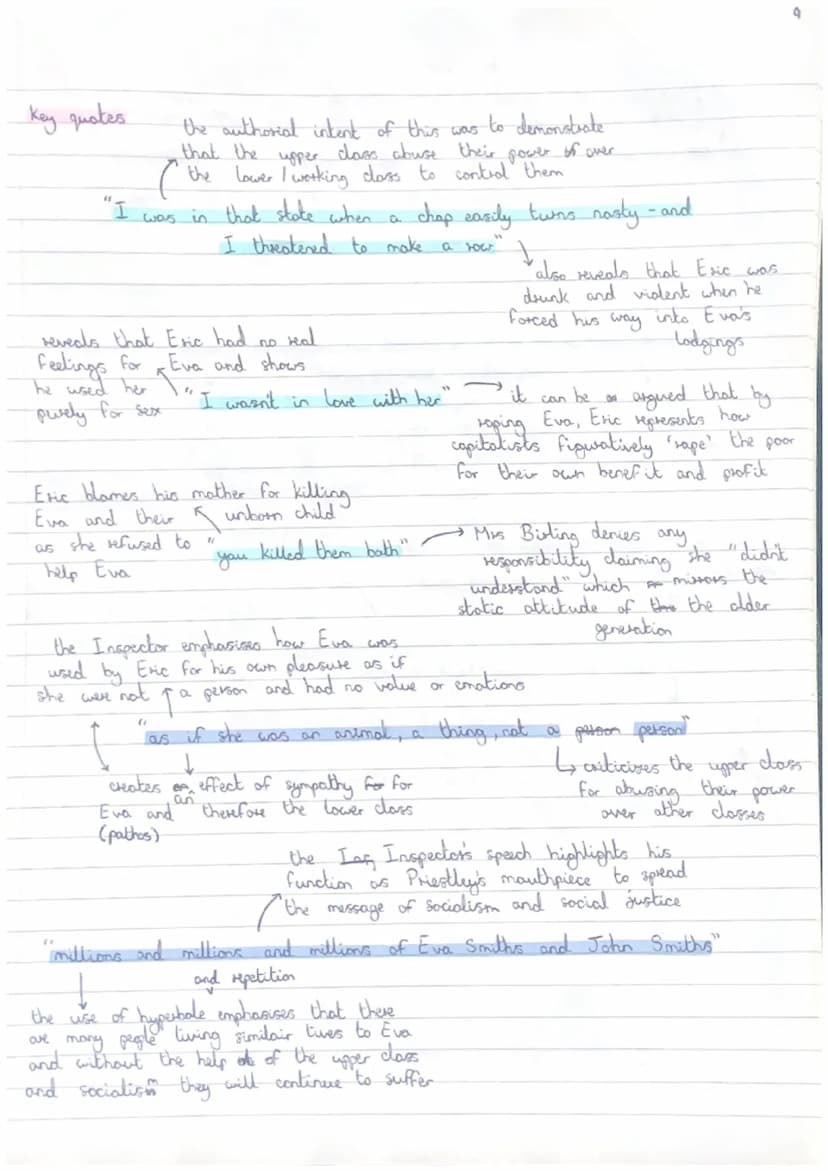 9
Key quotes
the authorial intent of this was to demonstrate
that the upper class abuse their power of over
the lower / working class to control them
"I was in that state when a chap easily turns nasty - and
I threatened to make a row"
also reveals that Eric was
drunk and violent when he
forced his way into Eva's
lodgings
reveals that Eric had no real
feelings for Eva and shows
he used her
purely for sex
"I wasn't in love with her"
it can be argued that by
raping Eva, Eric represents how
capitalists figuratively 'rape' the poor
for their own benefit and profit
Eric blames his mother for killing
Eva and their unborn child
as she refused to
help Eva
"you killed them both"
Mrs Birling denies any
responsibility claiming she "didn't
understand" which mirrors the
static attitude of the the older
generation
the Inspector emphasises how Eva was
used by Eric for his own pleasure as if
she were not a person and had no value or emotions
"as if she was an animal, a thing, not a person person"
creates an effect of sympathy for for
Eva and therefore the lower class
(pathos)
criticizes the upper class
for abusing their power
over other classes
the Inspector's speech highlights his
function as Priestley's mouthpiece to spread
the message of socialism and social justice
"millions and millions and millions of Eva Smiths and John Smiths"
and repetition
the use of hyperbole emphasises that there
are many people living similair lives to Eva
and without the help of the upper class
and socialism they will continue to suffer